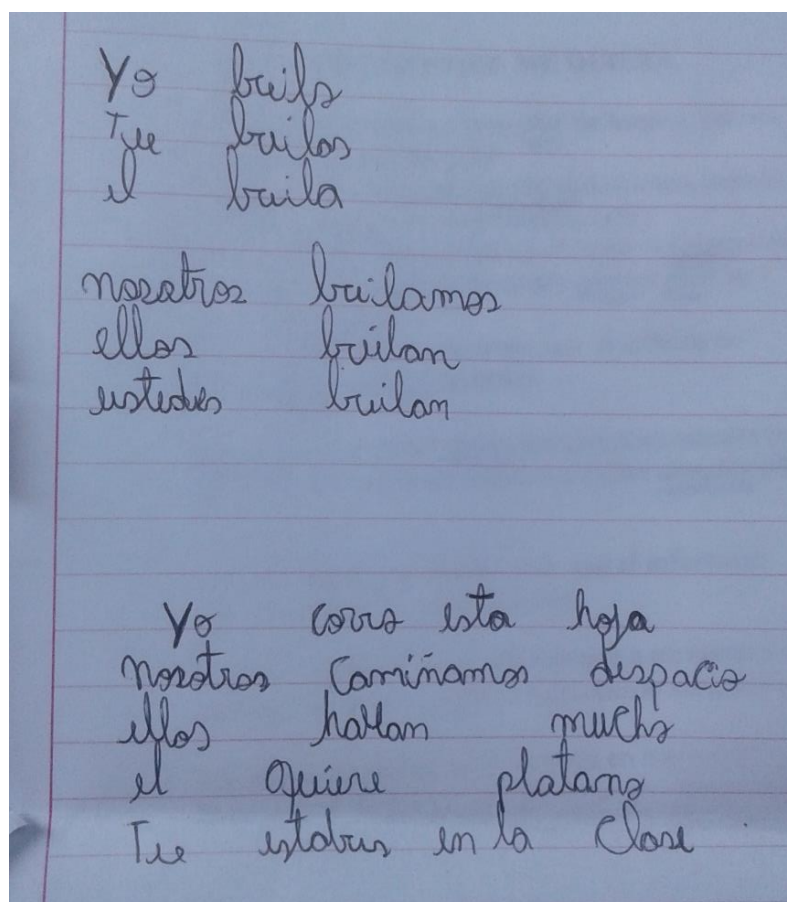 Yo bailo
Tue bailas
el baila
nosatros bailamos
ellos bailan
ustedes bailan
Yo corro esta hoja
nosotros Camiñamos despacio
ellos hablan mucho
el quiere platano
Tue estabas en la Clase